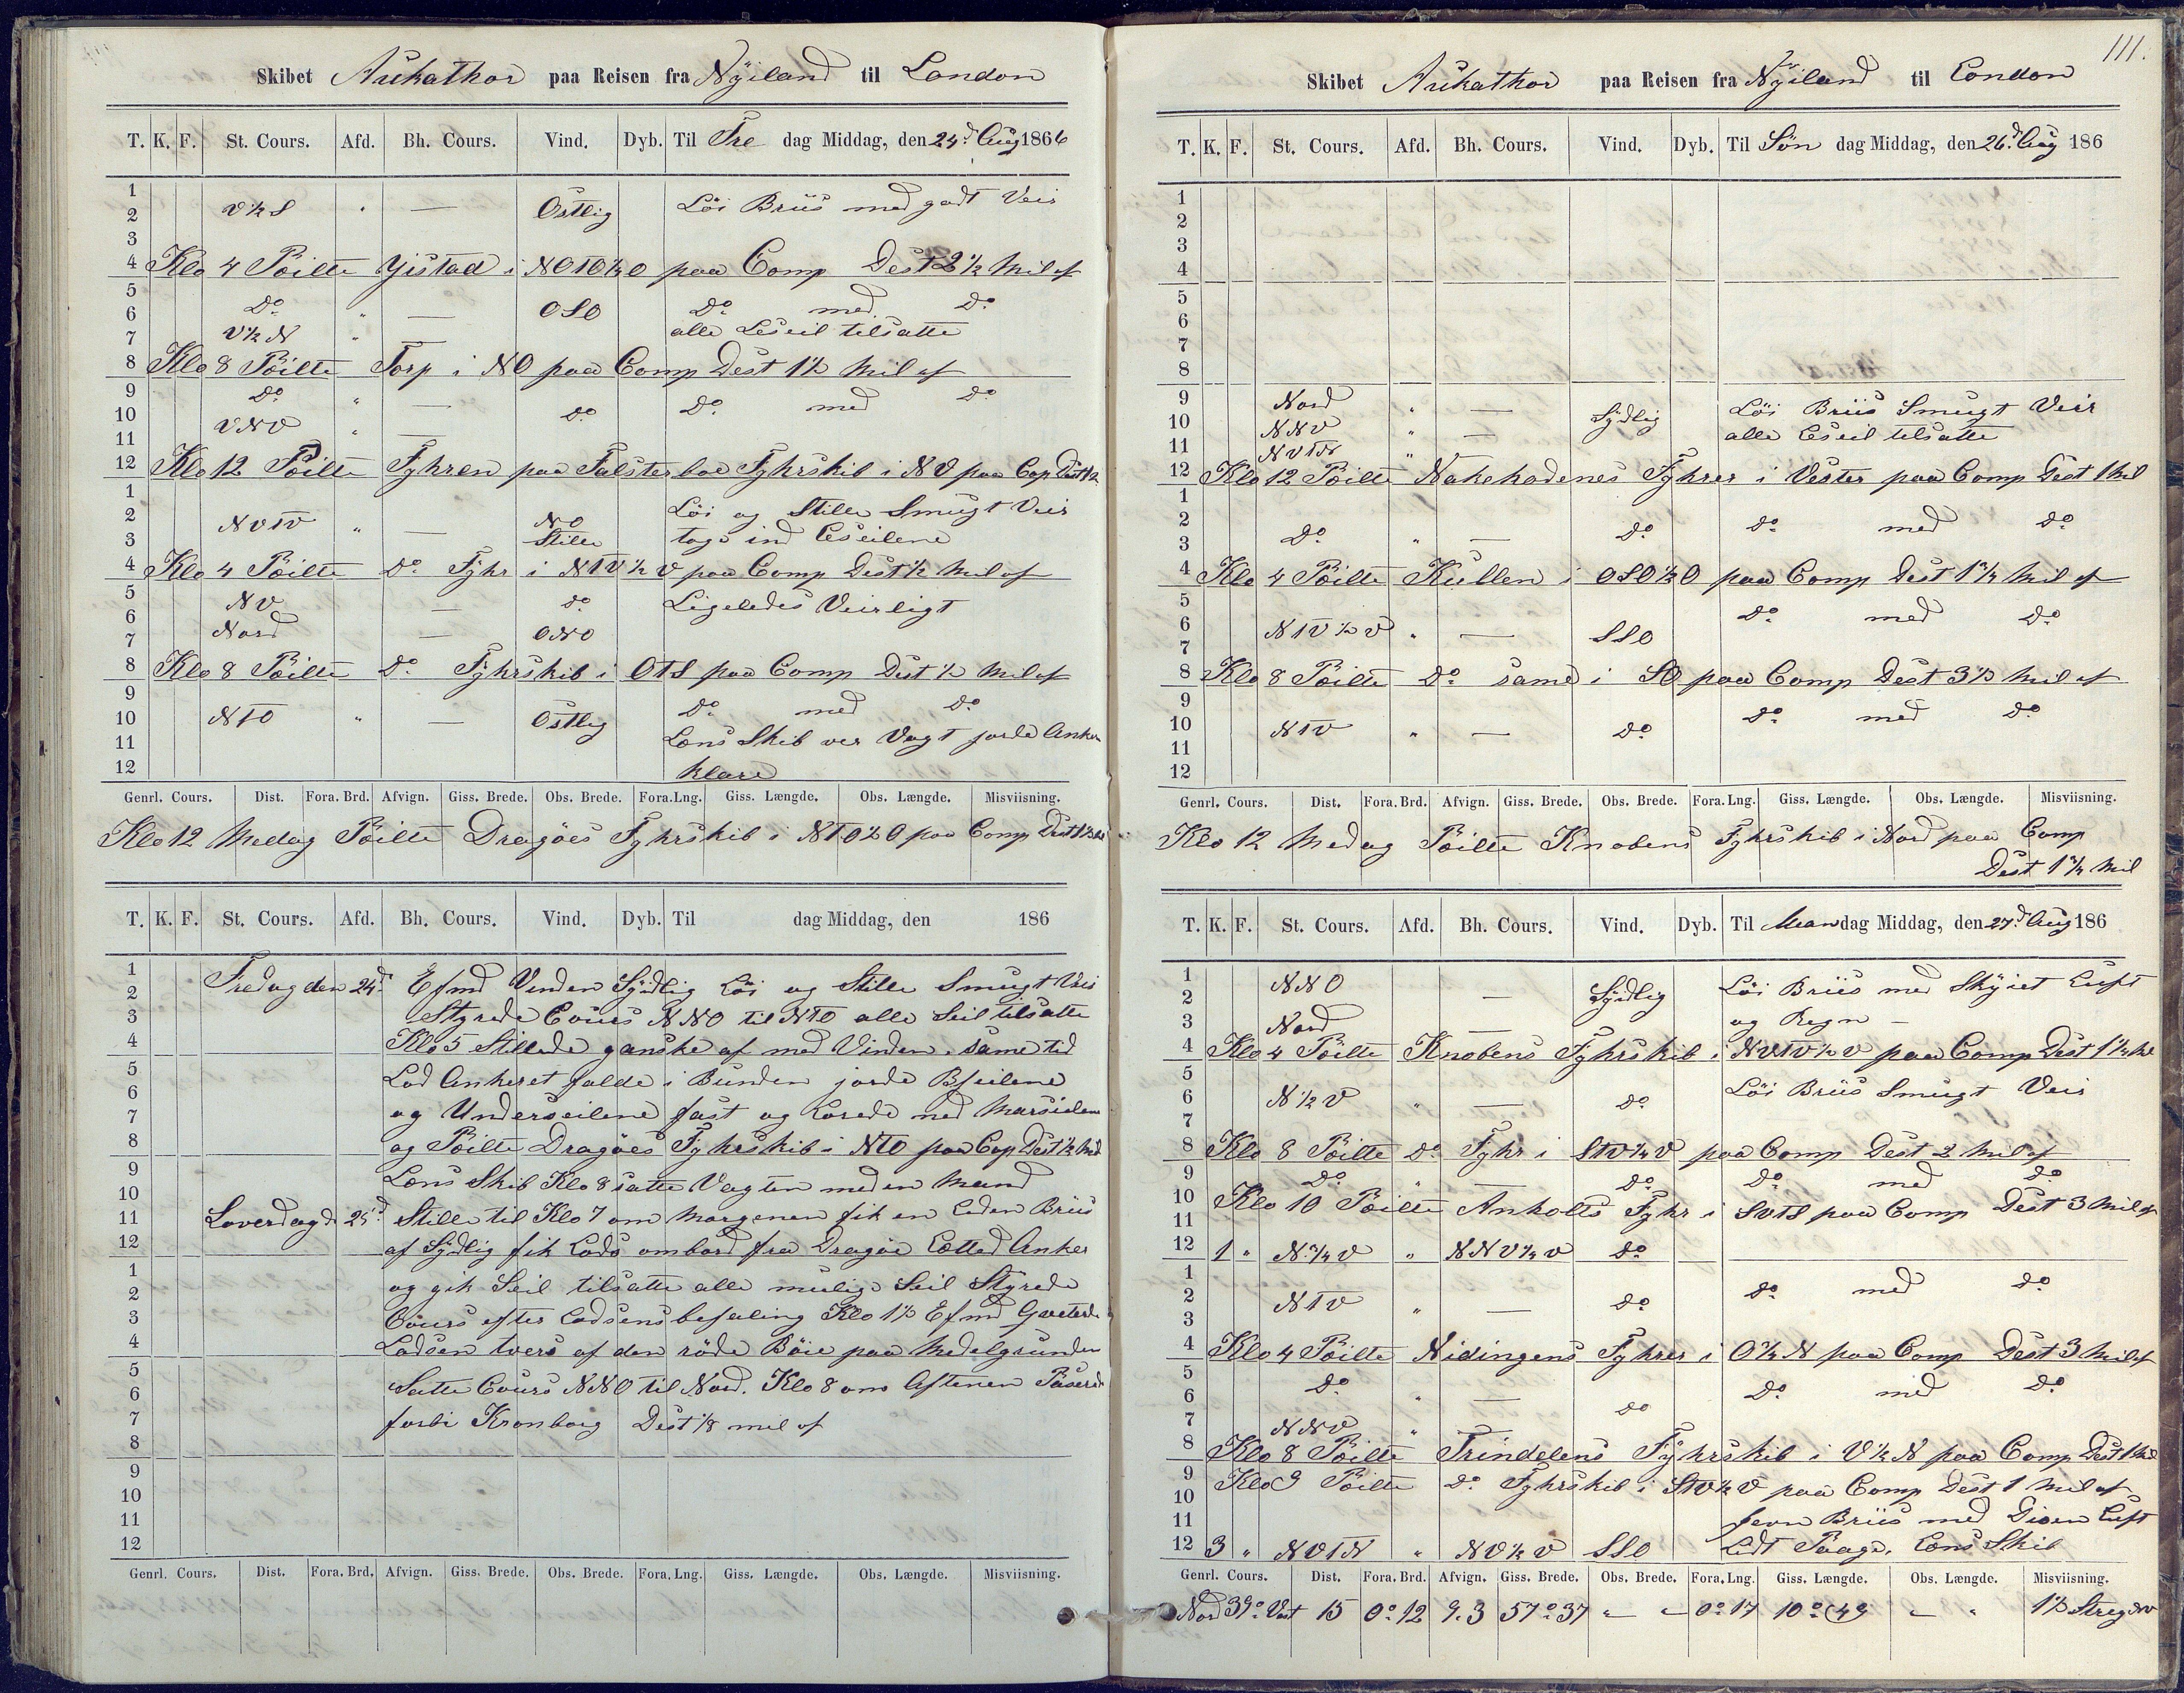 Skibet Aukathor paa Reisen fra Nyiland til London
T. K. F. St. Cours. Afd. Bh. Cours. Vind. Dyb. Til Fre dag Middag, den 24d Aug 1866
1
2 V½S " — Östlig Löi Briis med godt Veir
3
4 Klo 4 Pöilte Ystad i NOTO½O paa Comp Dest 2½ Mil af
5
6 Do " — OSO Do med Do
7 V½N " alle Leseil tilsatte
8 Klo 8 Pöilte Torp i NO paa Comp Dest 1½ Mil af
9 Do " — Do med Do
10 VNV " — Do
11
12 Klo 12 Pöilte Fyhren paa Falsterboe Fyhrskib i NV paa Cop Dest ½
1 Löi og Stille Smugt Veir
2 NVTV " — NO
3 Stille toge ind Leseilene
4 Klo 4 Pöilte Do Fyhr i NTV½V paa Comp Dest ½ Mil af
5 NV — Do Ligeledes Veirligt
6 Nord — ONO
7
8 Klo 8 Pöilte Do Fyhrskib i OTS paa Comp Dest ½ Mil af
9 Do med Do
10 NTO " — Östlig
11 Lens Skib ver Vagt jorde Anker
12 klare
Genrl. Cours. Dist. Fora. Brd. Afvign. Giss. Brede. Obs. Brede. Fora.Lng. Giss. Længde. Obs. Længde. Misviisning.
Klo 12 Medag Pöilte Dragöes Fyhrskib i NTO½O paa Comp Dest 1½
T. K. F. St. Cours. Afd. Bh. Cours. Vind. Dyb. Til dag Middag, den 186
1 Fredag den 24d Efmd Vinden Sydlig Löi og Stille Smugt Veir
2 Styrede Cours NNO til NTO alle Seil tilsatte
3
4 Klo 5 Stillede ganske af med Vinden. same tid
5 Lod Ankeret falde i Bunden jorde Bseilene
6 og Underseilene fast og Lorede ned Marsielene
7
8 og Pöilte Dragöes Fyhrskib i NTO paa Cop Dest ½ Mil
9 Lens Skib Klo 8 satte Vagten med en Mand
10
11 Loverdag d 25d Stille til Klo 7 om Morgenen fik en Liden Briis
12 af Sydlig fik Lods ombord fra Dragöe Lettede Anker
1 og gik Seil tilsatte alle mulige Seil Styrede
2
3 Cours efter Lodsens befaling Klo 1½ Efmd Qveterede
4 Lodsen tvers af den röde Böie paa Medelgrunden
5 Satte Cours NNO til Nord. Klo 8 om Aftenen Paserede
6
7 forbi Kronborg Dest 1/8 mil af
8
9
10
11
12
Genrl. Cours. Dist. Fora. Brd. Afvign. Giss. Brede. Obs. Brede. Fora. Lng. Giss. Længde. Obs. Længde. Misviisning.
111.
Skibet Aukathor paa Reisen fra Nyiland til London
T. K. F. St. Cours. Afd. Bh. Cours. Vind. Dyb. Til Søn dag Middag, den 26d Aug 186
1
2
3
4
5
6
7
8
9 Nord " — Sydlig Löi Briis Smugt Veir
10 NNV " — alle Leseil tilsatte
11 NVTN "
12 Klo 12 Pöilte Nakehodenes Fyhrer i Vester paa Comp Dest 1 Mil
1
2 Do " — Do Do med Do
3
4 Klo 4 Pöilte Kullen i OSO½O paa Comp Dest 1¾ Mil af
5 Do med Do
6 NTV½V " — SSO
7
8 Klo 8 Pöilte Do same i SO paa Comp Dest 3½ Mil af
9 Do med Do
10 NTV " — Do
11
12
Genrl. Cours. Dist. Fora. Brd. Afvign. Giss. Brede. Obs. Brede. Fora. Lng. Giss. Længde. Obs. Længde. Misviisning.
Klo 12 Medag Pöilte Knobens Fyhrskib i Nord paa Comp
Dest 1¾ Mil
T. K. F. St. Cours. Afd. Bh. Cours. Vind. Dyb. Til Man dag Middag, den 27d Aug 186
1 NNO — Sydlig Löi Briis med Skyiet Luft
2
3 Nord — og Regn —
4 Klo 4 Pöilte Knobens Fyhrskib i NVTV½V paa Comp Dest 1¼
5 Löi Briis Smugt Veir
6 N½V " — Do
7
8 Klo 8 Pöilte Do Fyhr i STV¼V paa Comp Dest 2 Mil af
9 Do " — Do Do med Do
10 Klo 10 Pöilte Anholts Fyhr i SVTS paa Comp Dest 3 Mil af
11
12 1 " N.¾V " NNV¼V Do
1 Do med Do
2 NTV " — Do
3
4 Klo 4 Pöilte Nidingens Fyhrer i O¼N paa Comp Dest 3 Mil af
5 Do " — Do Do med Do
6
7 NNV " —
8 Klo 8 Pöilte Trindelens Fyhrskib i V½N paa Comp Dest 1 Mil
9 Klo 9 Pöilte Do Fyhrskib i STV½V paa Comp Dest 1 Mil af
10
11 jevn Briis med Disen Luft
12 3 " NVTN " NV½V SSO Lidt Taage. Lens Skib
Genrl. Cours. Dist. Fora. Brd. Afvign. Giss. Brede. Obs. Brede. Fora. Lng. Giss. Længde. Obs. Længde. Misviisning.
Nord 39° Vest 15 0° 12 9.3 57° 37 " " 0° 17 10° 49 " " 1½ Streg NV